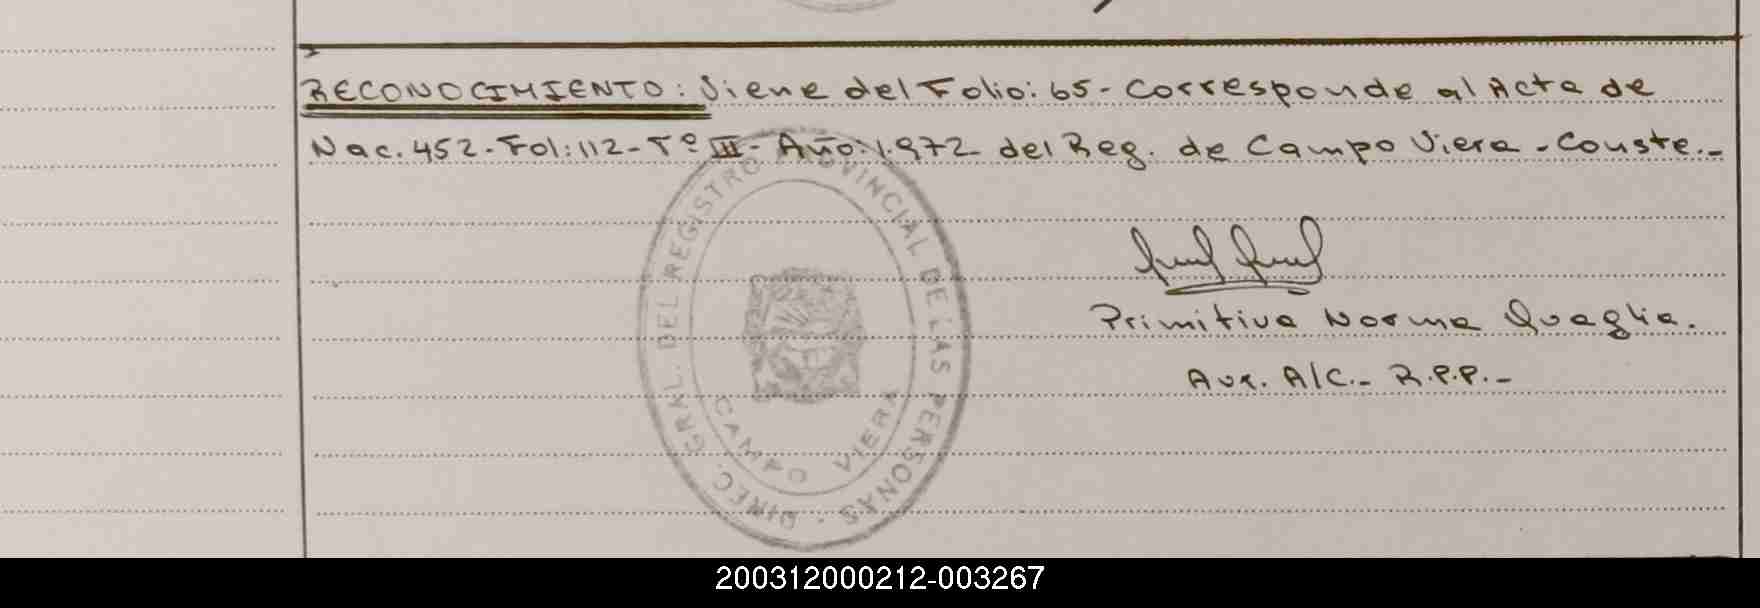 RECONOCIMIENTO: Viene del Folio: 65- Corresponde al Acta de
Nac. 452- Fol: 112- Tº III- Año: 1.972 del Reg. de Campo Viera - Conste.-
DIREC. GRAL. DEL REGISTRO PROVINCIAL DE LAS PERSONAS
CAMPO VIERA
Primitiva Norma Quaglia.
Aux. A/C.- R.P.P.-
200312000212-003267